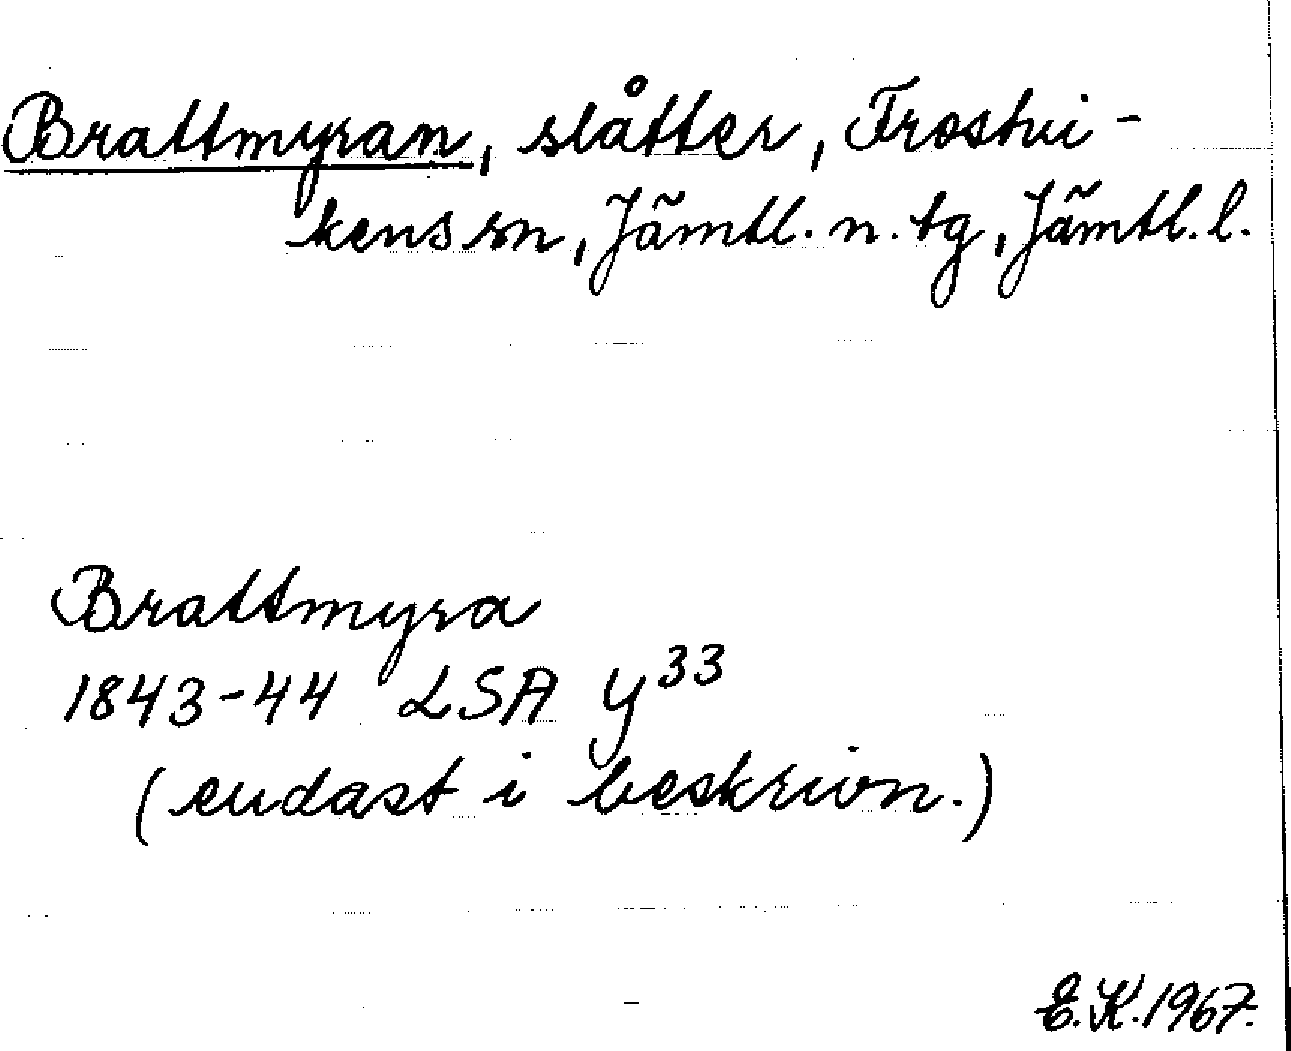 Brattmyran, slåtter, Frostvi-
kens sn, Jämtl. n. tg, Jämtl. l.
Brattmyra
1843-44 LSA Y 33
(endast i beskrivn.)
E.K. 1967.